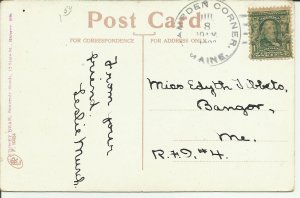 Post Card
FOR CORRESPONDENCE
FOR ADDRESS ONLY
HAMPDEN CORNER,
8
MAINE.
From your
friend,
Leslie
Miss Edyth Tibbets,
Bangor,
Me.
R.F.D. #4.